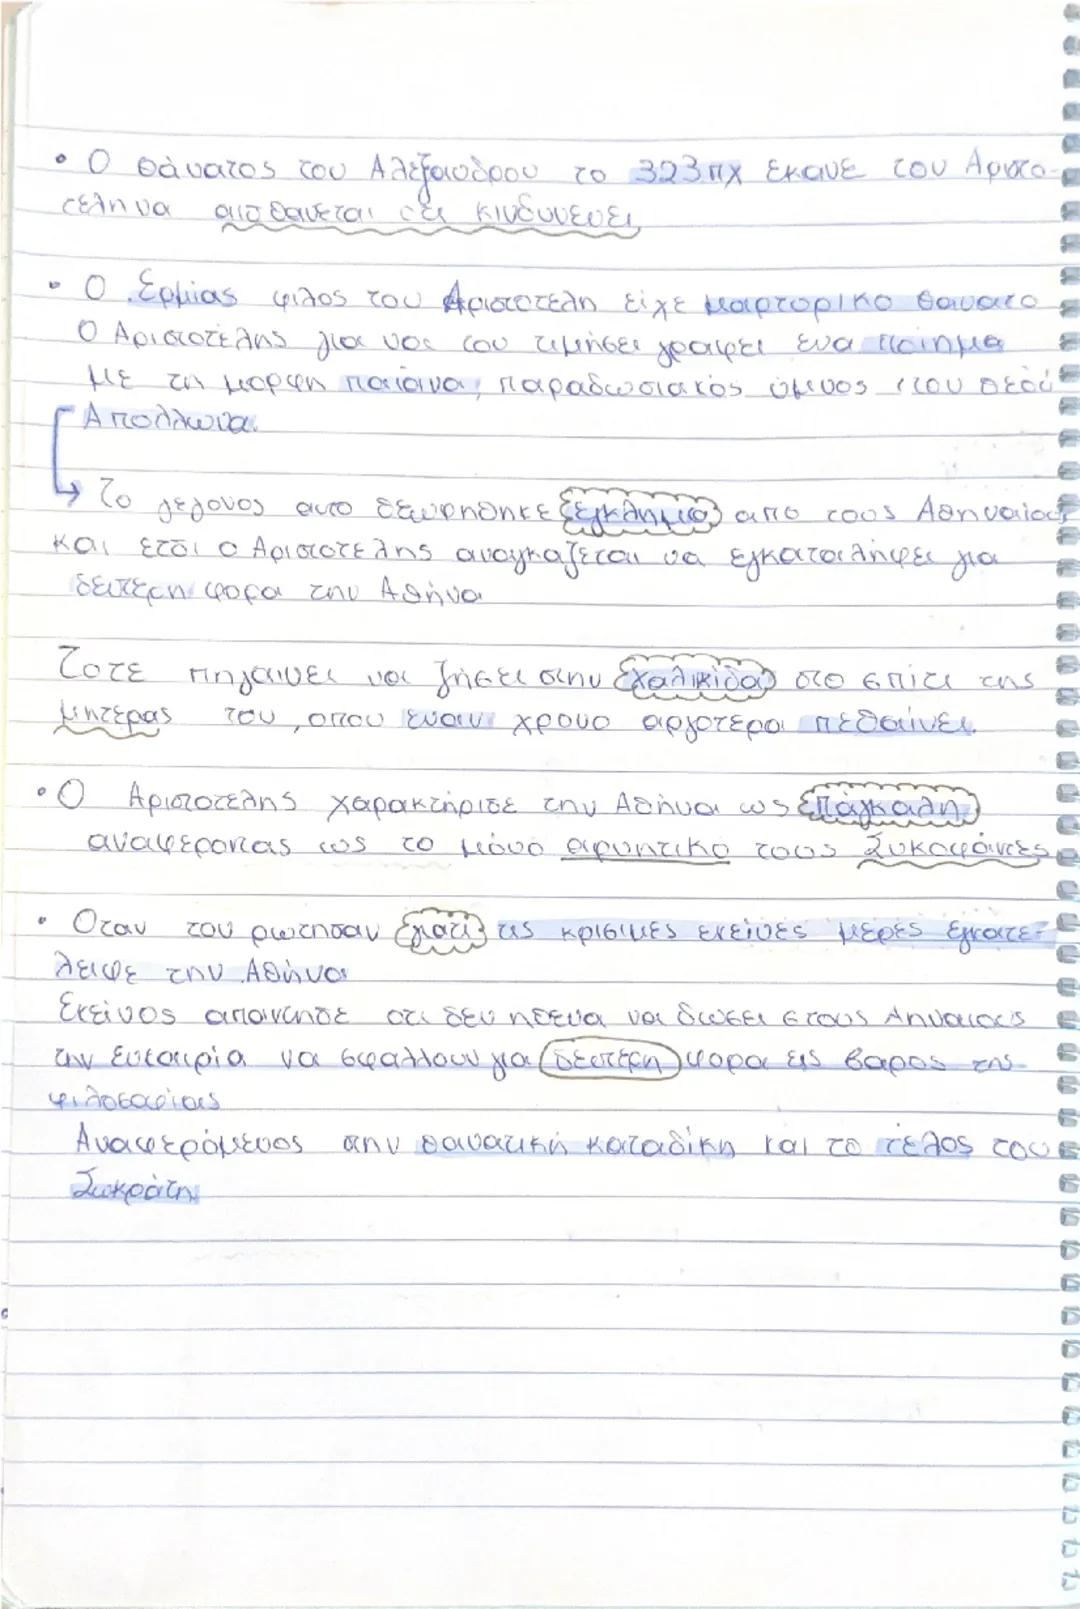 • Ο θάνατος του Αλεξανδρου το 323πχ εκανε τον Αριστο-
τελη να αισθανεται οτι κινδυνευει
• Ο Ερμίας φιλος του Αριστοτελη είχε μαρτυρικο θανατο
Ο Αριστοτέλης για να του τιμήσει γραφει ενα ποιημα
με τη μορφη παιανα, παραδωσιακός ύμνος του θεού
Απολλωνα.
Το γεγονος αυτο θεωρηθηκε εγκλημα απο τους Αθηναίους
και ετσι ο Αριστοτελης αναγκαζεται να εγκαταληψει για
δευτερη φορα την Αθήνα
Τοτε πηγαινει να ζησει στην Χαλικίδα στο σπίτι της
μητερας του, οπου εναν χρονο αργοτερα πεθαίνει.
• Ο Αριστοτελης χαρακτήρισε την Αθήνα ως πάγκαλη
αναφεροντας ως το μόνο αρνητικο τους Συκοφάντες
• Οταν τον ρωτησαν γιατι τις κρισιμες εκείνες μερες εγκατε-
λειψε την Αθήνα
Εκείνος απαντησε οτι δεν ηθενα να δωσει στους Αηναιους
την ευκαιρία να σφαλλουν για δευτερη φορα εις βαρος της
φιλοσοφίας
Αναφερόμενος στην θανατική καταδίκη και το τέλος του
Σωκράτη